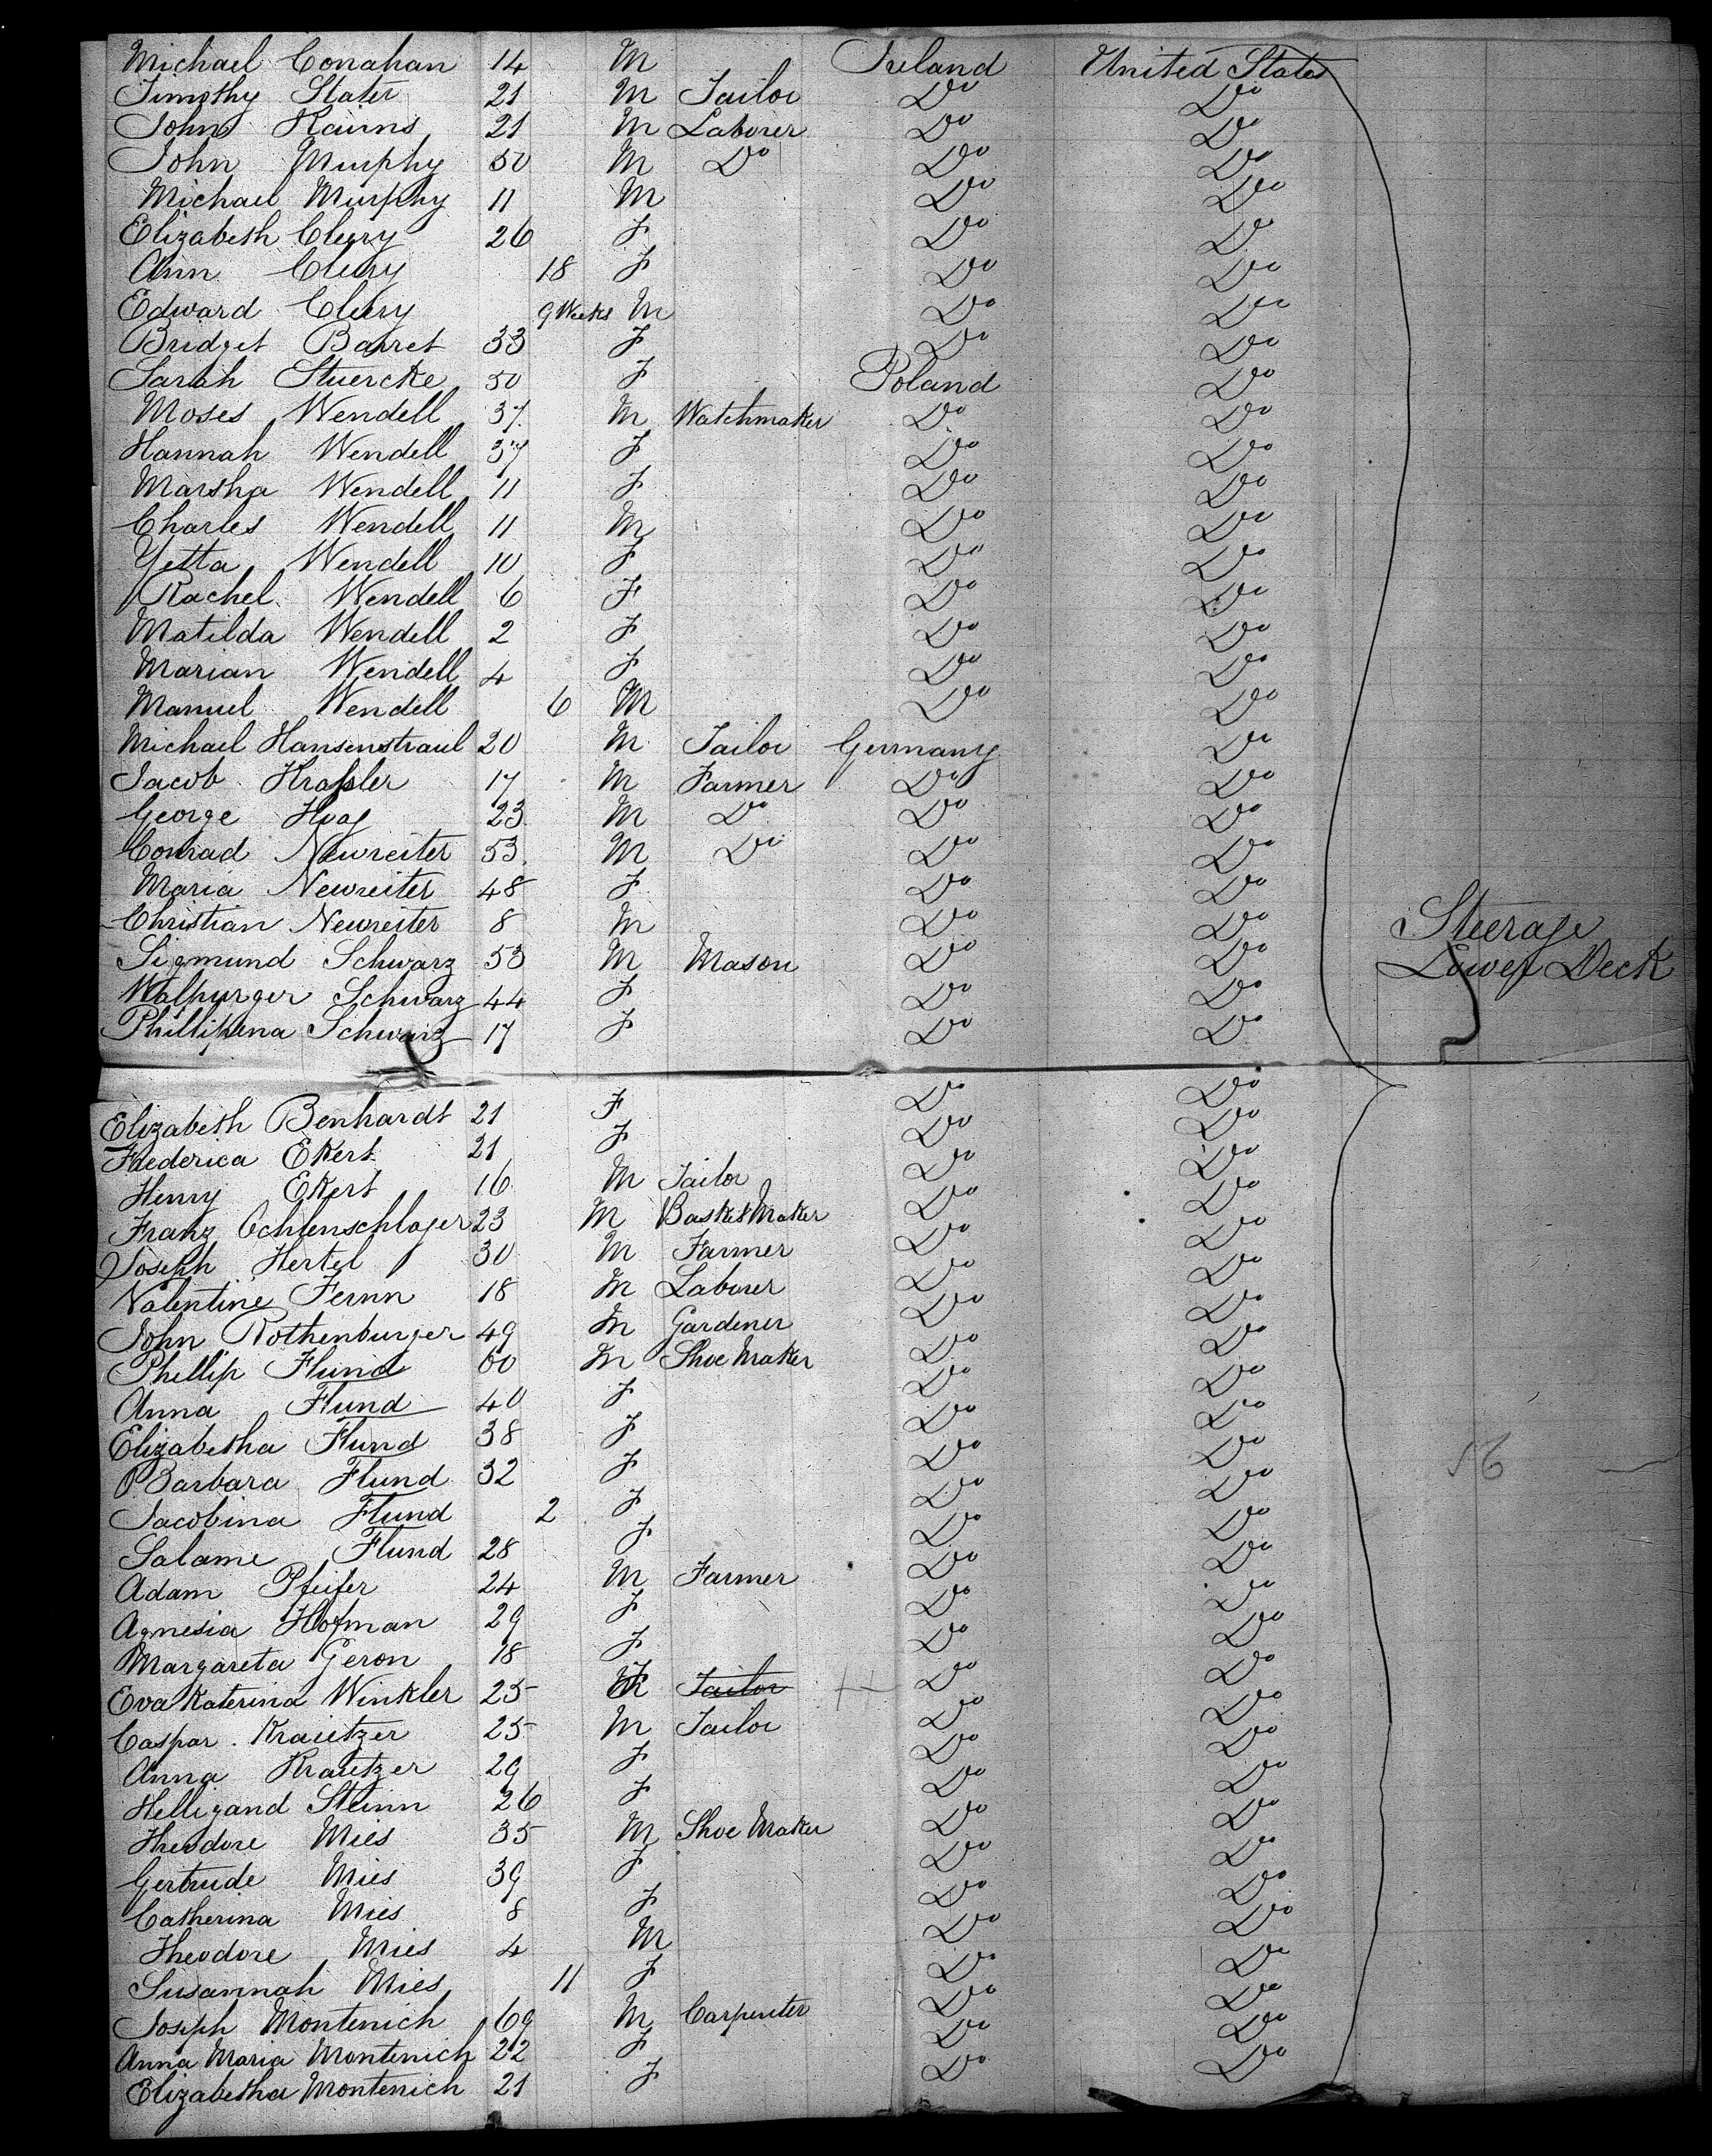 Michael Conahan 14 M Ireland United States
Timothy Slater 21 M Tailor Do Do
John Kairns 21 M Laborer Do Do
John Murphy 50 M Do Do Do
Michael Murphy 11 M Do Do
Elizabeth Clery 26 F Do Do
Ann Clery 18 F Do Do
Edward Clery 9 Weeks M Do Do
Bridget Barret 33 F Do Do
Sarah Stuercke 50 F Poland Do
Moses Wendell 37 M Watchmaker Do Do
Hannah Wendell 37 F Do Do
Marsha Wendell 11 F Do Do
Charles Wendell 11 M Do Do
Yetta Wendell 10 F Do Do
Rachel Wendell 6 F Do Do
Matilda Wendell 2 F Do Do
Marian Wendell 4 F Do Do
Manuel Wendell 6 M Do Do
Michael Hansenstraul 20 M Tailor Germany Do
Jacob Hrassler 17 M Farmer Do Do
George Hoag 23 M Do Do Do
Conrad Newreiter 53 M Do Do Do
Maria Newreiter 48 F Do Do
Christian Newreiter 8 M Do Do Steerage
Sigmund Schwarz 53 M Mason Do Do Lower Deck
Walpurger Schwarz 44 F Do Do
Phillipena Schwarz 17 F Do Do
Elizabeth Benhardt 21 F Do Do
Frederica Ekert 21 F Do Do
Henry Ekert 16 M Tailor Do Do
Franz Ochlenschlager 23 M Basket Maker Do Do
Joseph Hertel 30 M Farmer Do Do
Valentine Fernn 18 M Laborer Do Do
John Rothenburger 49 M Gardener Do Do
Phillip Flund 60 M Shoe Maker Do Do
Anna Flund 40 F Do Do
Elizabetha Flund 38 F Do Do
Barbara Flund 32 F Do Do 56
Jacobina Flund 2 F Do Do
Salame Flund 28 F Do Do
Adam Pfeifer 24 M Farmer Do Do
Agnesia Hofman 29 F Do Do
Margareta Geron 18 F Do Do
Eva Katerina Winkler 25 F Tailor Do Do
Caspar Krautzer 25 M Tailor Do Do
Anna Krautzer 29 F Do Do
Helligand Steinn 26 F Do Do
Theodore Mies 35 M Shoe Maker Do Do
Gertrude Mies 39 F Do Do
Catherina Mies 8 F Do Do
Theodore Mies 4 M Do Do
Susannah Mies 11 F Do Do
Joseph Montenich 69 M Carpenter Do Do
Anna Maria Montenich 22 F Do Do
Elizabetha Montenich 21 F Do Do